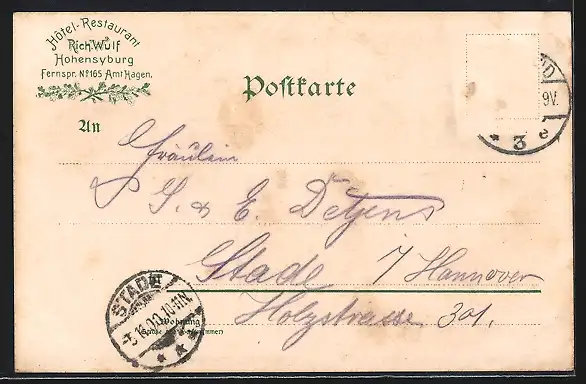 Hôtel-Restaurant
Rich. Wulf
Hohensyburg
Fernspr. No 165 Amt Hagen.
Postkarte
9V.
* 3 e
An
Fräulein
G. & E. Detjens
Stade i/ Hannover
Holzstrasse 301.
STADE
Wohnung